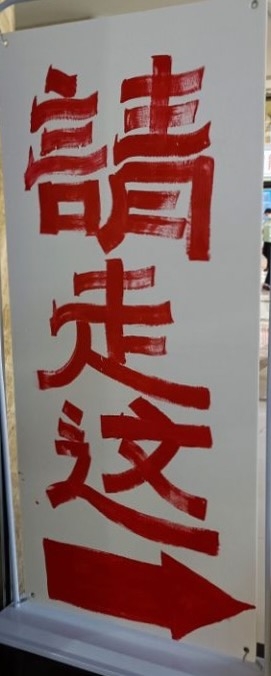 請
走
这